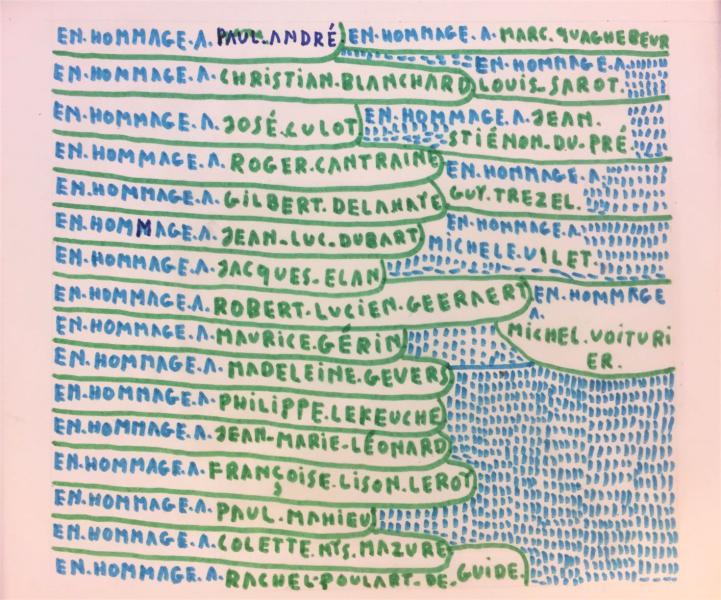 EN.HOMMAGE.A.PAUL.ANDRÉ
EN.HOMMAGE.A.MARC.QUAGHEBEUR
EN.HOMMAGE.A.CHRISTIAN.BLANCHARD
EN.HOMMAGE.A.
LOUIS.SAROT.
EN.HOMMAGE.A.JOSÉ.CULOT
EN.HOMMAGE.A.JEAN.
STIÉNON.DU.PRÉ.
EN.HOMMAGE.A.ROGER.CANTRAINE
EN.HOMMAGE.A.
GUY.TREZEL.
EN.HOMMAGE.A.GILBERT.DELAHAYE
EN.HOMMAGE.A.JEAN.LUC.DUBART
EN.HOMMAGE.A.
MICHELE.VILET.
EN.HOMMAGE.A.JACQUES.ELAN
EN.HOMMAGE.A.ROBERT.LUCIEN.GEERAERT
EN.HOMMAGE
A.
MICHEL.VOITURI
ER.
EN.HOMMAGE.A.MAURICE.GÉRIN
EN.HOMMAGE.A.MADELEINE.GEVERS
EN.HOMMAGE.A.PHILIPPE.LEKEUCHE
EN.HOMMAGE.A.JEAN-MARIE-LÉONARD
EN.HOMMAGE.A.FRANÇOISE.LISON.LEROY
EN.HOMMAGE.A.PAUL.MAHIEU
EN.HOMMAGE.A.COLETTE.NYS.MAZURE
EN.HOMMAGE.A.RACHEL.POULART.DE.GUIDE.